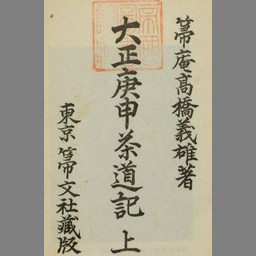 箒庵高橋義雄著
大正庚申茶道記 上
東京 箒文社藏版